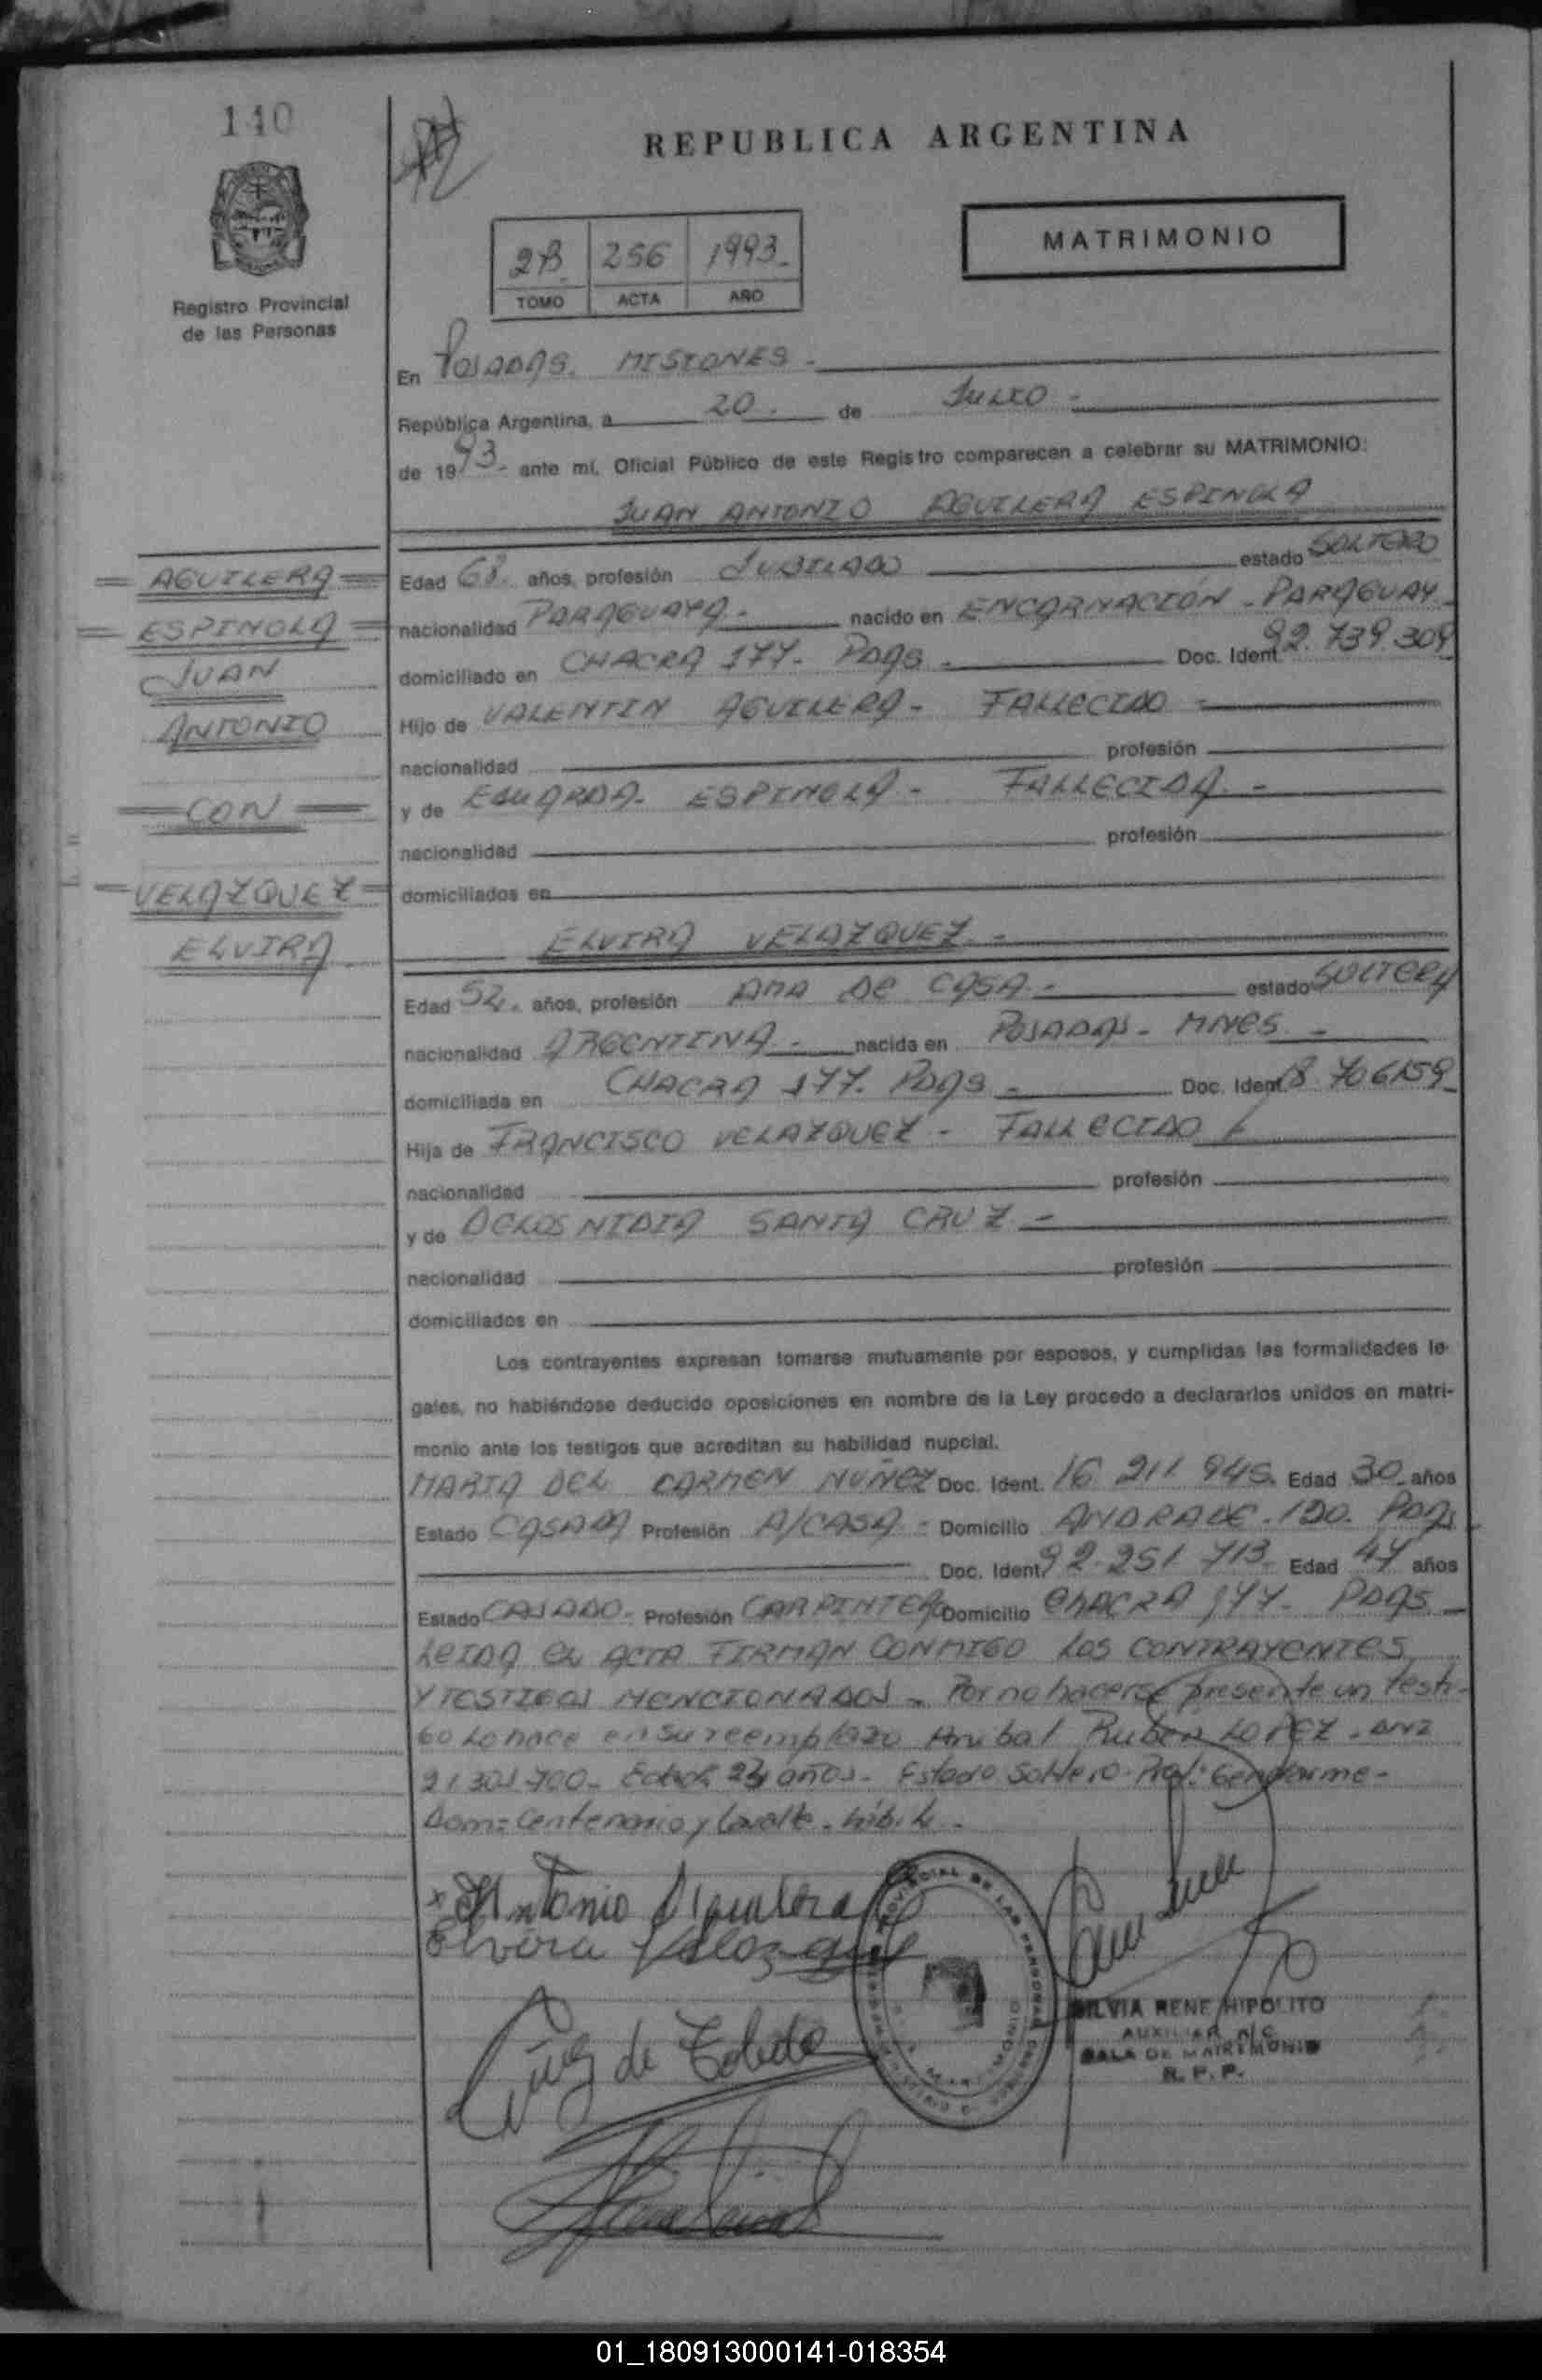 140
REPUBLICA ARGENTINA
MATRIMONIO
2B 256 1993.
TOMO ACTA AÑO
Registro Provincial
de las Personas
En POSADAS. MISIONES -
República Argentina, a 20. de JULIO -
de 1993- ante mí, Oficial Público de este Registro comparecen a celebrar su MATRIMONIO:
JUAN ANTONIO AGUILERA ESPINOLA
AGUILERA
ESPINOLA
JUAN
ANTONIO
CON
VELAZQUEZ
ELVIRA
Edad 68. años, profesión JUBILADO estado SOLTERO
nacionalidad PARAGUAYA - nacido en ENCARNACIÓN - PARAGUAY -
domiciliado en CHACRA 177- PDAS - Doc. Ident. 92.739.309
Hijo de VALENTIN AGUILERA - FALLECIDO -
nacionalidad profesión
y de EDUARDA ESPINOLA - FALLECIDA -
nacionalidad profesión
domiciliados en
ELVIRA VELAZQUEZ -
Edad 52. años, profesión AMA DE CASA - estado SOLTERA
nacionalidad ARGENTINA - nacida en POSADAS - MNES -
domiciliada en CHACRA 177. PDAS - Doc. Ident. 8.706159-
Hija de FRANCISCO VELAZQUEZ - FALLECIDO
nacionalidad profesión
y de DELOSNIDIA SANTA CRUZ -
nacionalidad profesión
domiciliados en
Los contrayentes expresan tomarse mutuamente por esposos, y cumplidas las formalidades le-
gales, no habiéndose deducido oposiciones en nombre de la Ley procedo a declararlos unidos en matri-
monio ante los testigos que acreditan su habilidad nupcial.
MARIA DEL CARMEN NUÑEZ Doc. Ident. 16 211 945. Edad 30 años
Estado CASADA Profesión A/CASA - Domicilio ANDRADE - 120. PDAS
Doc. Ident. 92-251 713- Edad 47 años
Estado CASADO - Profesión CARPINTERO Domicilio CHACRA 177- PDAS -
LEIDA EL ACTA FIRMAN CONMIGO LOS CONTRAYENTES
Y TESTIGOS MENCIONADOS - Por no hacerse presente un testi-
go Lo hace en su reemplazo Anibal Ruben LOPEZ - DNI
21 301 700- Edad 23 años - Estado Soltero - Prof: Gendarme -
Dom: Centenario y Lavalle -
x Antonio Aguilera
Elvira Velazquez
Cruz de Toledo
SILVIA RENE HIPOLITO
AUXILIAR A/C
SALA DE MATRIMONIO
R. P. P.
01_180913000141-018354